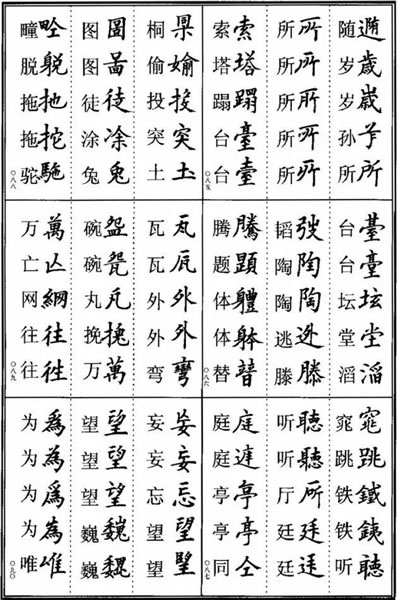 随 岁歲 岁歳 孙 所所
所所 所所 所所 所所 所所
索索 塔塔 蹋蹋 台臺 台臺
〇八五
台臺 台臺 坛坛 堂坣 滔滔
韬弢 陶陶 陶陶 逃迯 滕滕
腾騰 题題 体軆 体躰 替
〇八六
窕窕 跳跳 铁鐵 铁銕 听聽
听聽 听聽 厅 廷廷 廷
庭庭 庭 亭亭 亭亭 同仝
〇八七
桐 偷婾 投投 突突 土
图圖 图啚 徒徒 涂凃 兔兔
疃 脱 拖 拖拕 驼
〇八八
瓦瓦 瓦 外外 外外 弯彎
碗盌 碗 丸 挽 万萬
万萬 亡亾 网網 往往 往徃
〇八九
妄妄 妄妄 忘忘 望望 望
望望 望望 望望 巍巍 巍
为為 为為 为爲 为為 唯唯
〇九〇